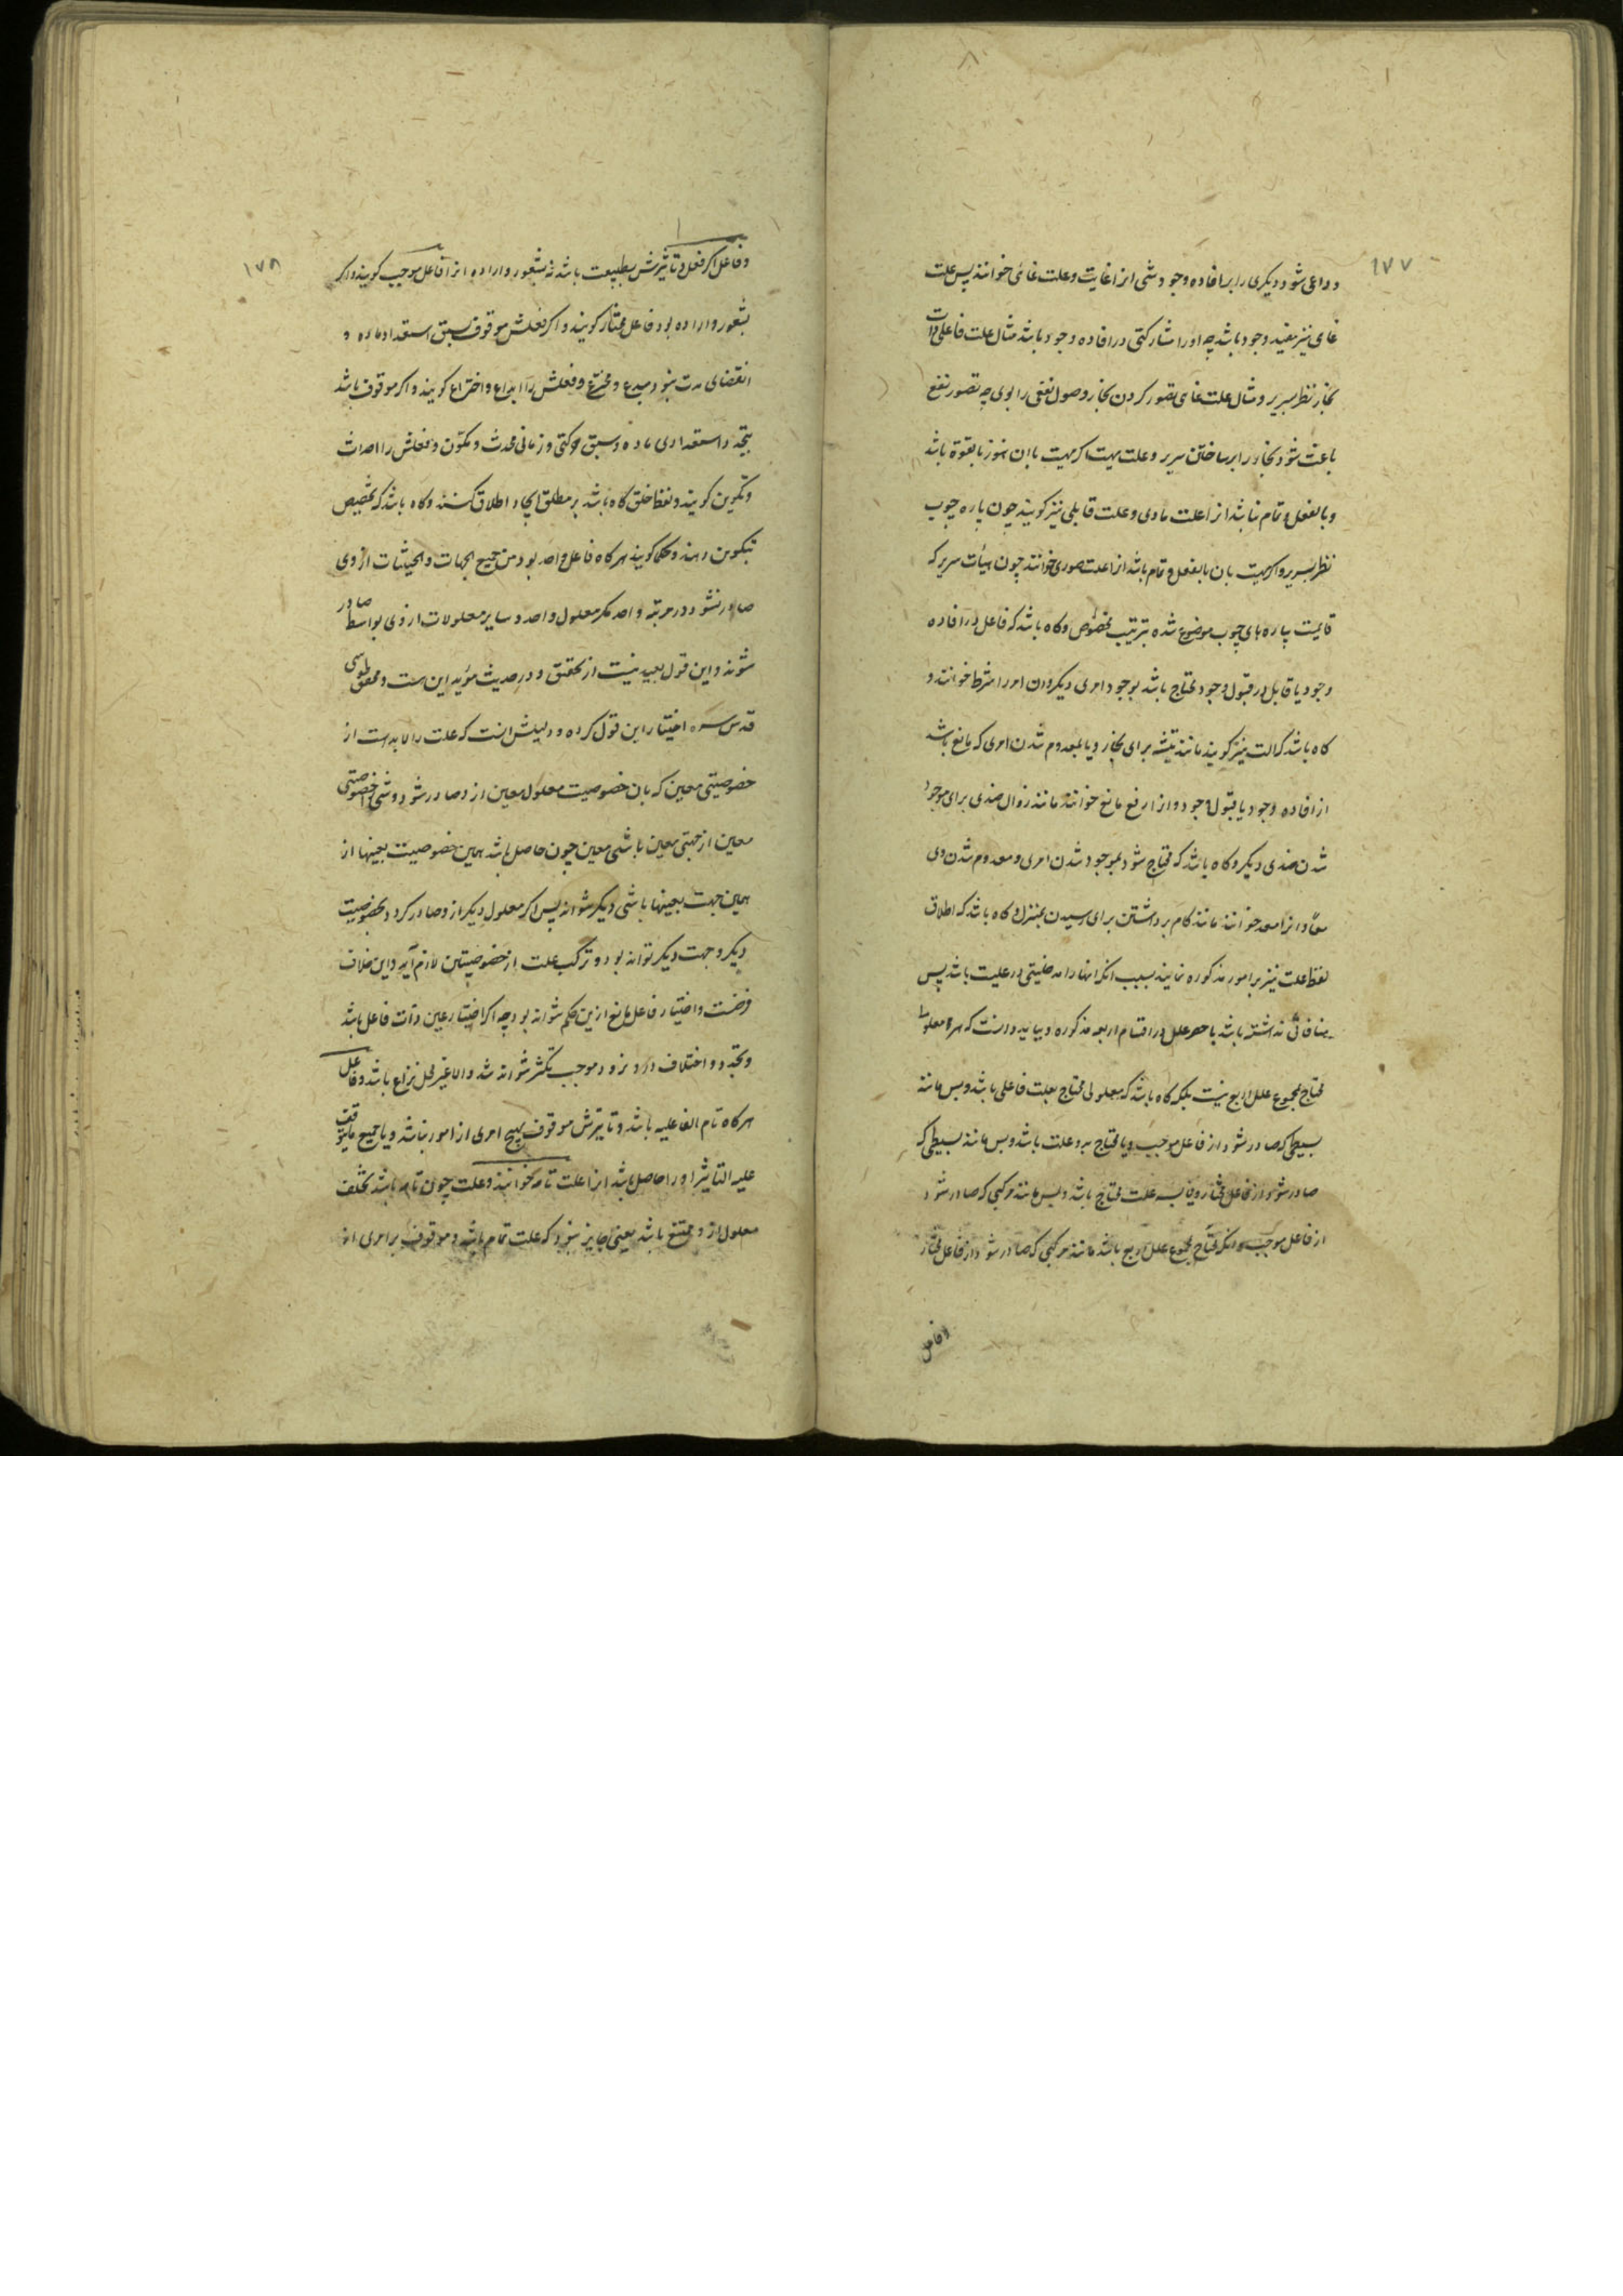 ١٧٧
و داعی شود دیگری را بر افاده وجود شی انرا غایت و علت غائی خوانند پس علت
غای نیز مفید وجود باشد چه او را مشارکتی در افاده وجود باشد مثال علت فاعلی ذات
نجار نظر بسریر و مثال علت غای تصور کردن نجار وصول نفعی را بوی چه تصور نفع
باعث شود نجار را بر ساختن سریر و علت مهیت اگر مهیت با ان هنوز بالقوة باشد
و بالفعل و تمام نباشد انرا علت مادی و علت قابلی نیز گویند چون پاره چوب
نظر بسریر و اگر مهیت بان بالفعل و تمام باشد انرا علت صوری خوانند چون هیأت سریر که
قایمست بپاره های چوب موضوع شده بترتیب مخصوص و گاه باشد که فاعل در افاده
وجود یا قابل در قبول وجود محتاج باشد بوجود امری دیگر و ان امر را شرط خوانند و
گاه باشد که الت نیز گویند مانند تیشه برای نجار و یا بمعدوم شدن امری که مانع باشد
از افاده وجود یا قبول وجود و انرا رفع مانع خوانند مانند زوال ضدی برای موجود
شدن ضدی دیگر و گاه باشد که محتاج شود بموجود شدن امری و معدوم شدن وی
معاً و انرا معد خوانند مانند گام برداشتن برای رسیدن بمنزل و گاه باشد که اطلاق
لفظ علت نیز بر امور مذکوره نمایند بسبب انکه انها را مدخلیتی در علیت باشد پس
منافاتی نداشته باشد با حصر علل در اقسام اربعه مذکوره و بباید دانست که هر معلول
محتاج بمجموع علل اربع نیست بلکه گاه باشد که معلولی محتاج بعلت فاعلی باشد و بس مانند
بسیطی که صادر شود از فاعل موجب و یا محتاج بدو علت باشد و بس مانند بسیطی که
صادر شود از فاعل مختار و یا بسه علت محتاج باشد و بس مانند مرکبی که صادر شود
از فاعل موجب و انکه محتاج بمجموع علل اربع باشد مانند مرکبی که صادر شود از فاعل مختار
و فاعل
١٧٨
و فاعل اگر فعل و تاثیرش بطبیعت باشد نه بشعور و اراده انرا فاعل موجب گویند و اگر
بشعور و اراده بود فاعل مختار گویند و اگر فعلش موقوف بسبق استعداد ماده و
انقضای مدت نبود مبدع و مخترع و فعلش را ابداع و اختراع گویند و اگر موقوف باشد
بتجدد استعدادی ماده و سبق حرکتی و زمانی محدث و مکوّن و فعلش را احداث
و تکوین گویند و لفظ خلق گاه باشد بر مطلق ایجاد اطلاق کنند و گاه باشد که تخصیص
بتکوین دهند و حکما گویند هر گاه فاعل واحد بود من جمیع الجهات و الحیثیات از وی
صادر نشود در مرتبه واحد مگر معلول واحد و سایر معلولات از وی بواسطه صادر
شوند و این قول بعید نیست از تحقیق و در حدیث مؤید این هست و محقق طوسی
قدس سره اختیار این قول کرده و دلیلش انست که علت را لابدست از
خصوصیتی معین که بان خصوصیت معلول معین از و صادر شود و شی را خصوصیتی
معین از جهتی معین با شی معین چون حاصل باشد همین خصوصیت بعینها از
همین جهت بعینها با شی دیگر نتواند پس اگر معلول دیگر از و صادر گردد بخصوصیت
دیگر و جهت دیگر تواند بود و ترکب علت از خصوصیتین لازم آید و این خلاف
فرضست و اختیار فاعل مانع ازین حکم نتواند بود چه اگر اختیار عین ذات فاعل باشد
و تجدد و اختلاف در او نرود موجب تکثر نتواند شد و الا غیر محل نزاع باشد و فاعل
هر گاه تام الفاعلیه باشد و تاثیرش موقوف بهیچ امری از امور نباشد و یا جمیع مایتوقف
علیه التاثیر او را حاصل باشد انرا علت تامه خوانند و علت چون تامه باشد تخلف
معلول از و ممتنع باشد یعنی جایز نبود که علت تمام باشد و موقوف بر امری از